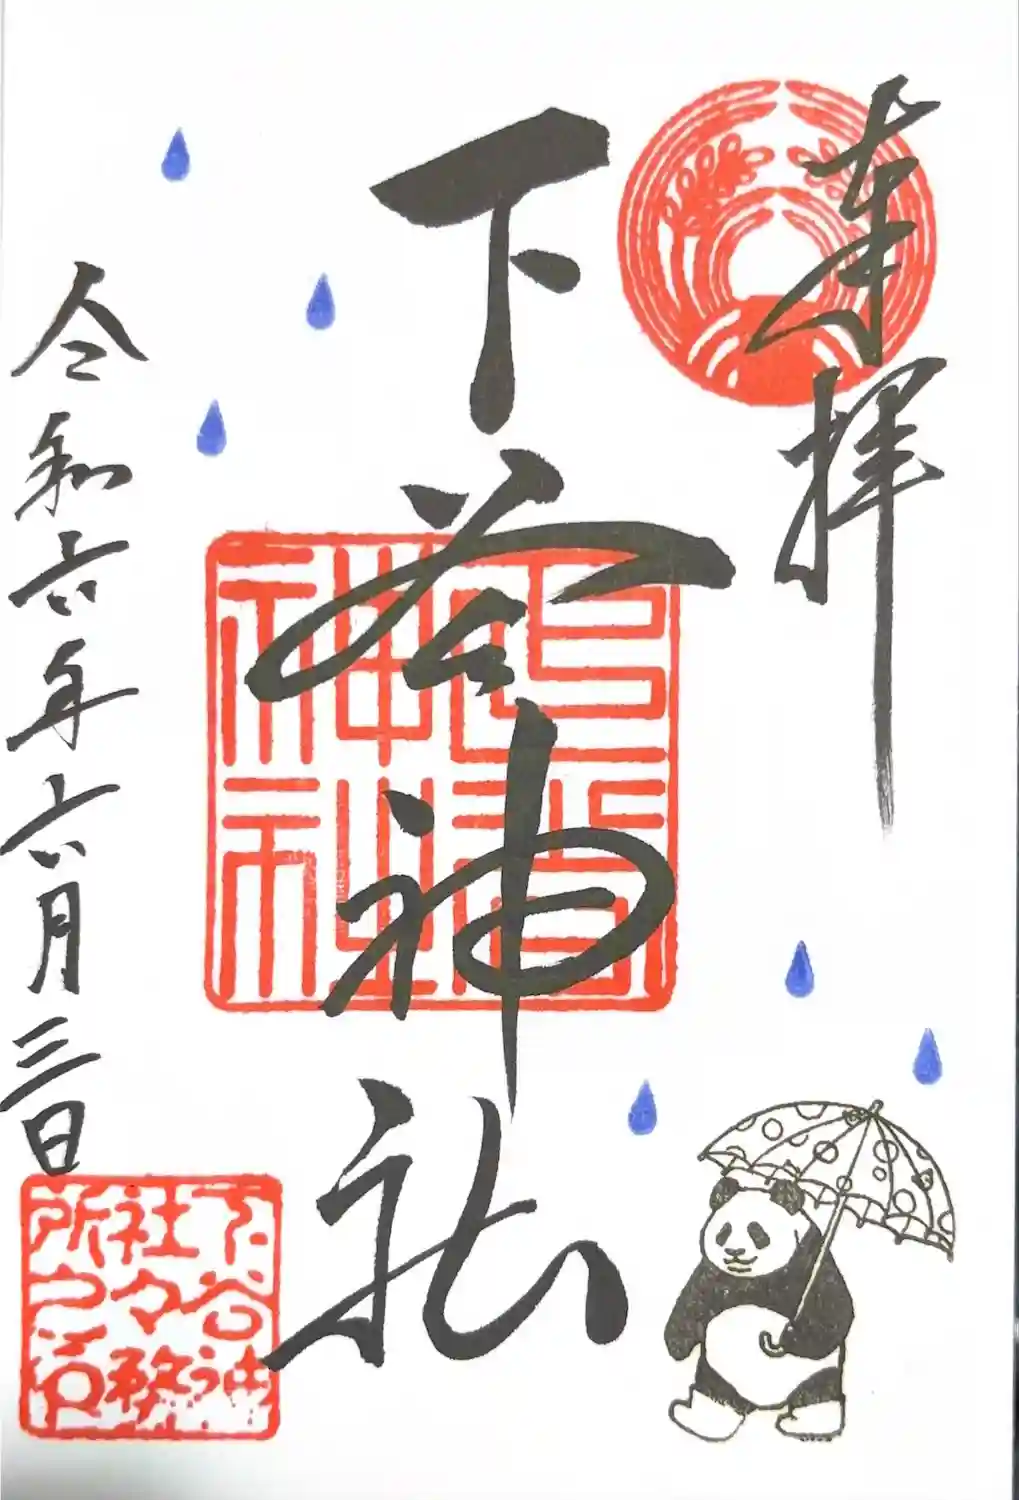 奉拝
下谷神社
令和六年六月三日
下谷神
社々務
所之印